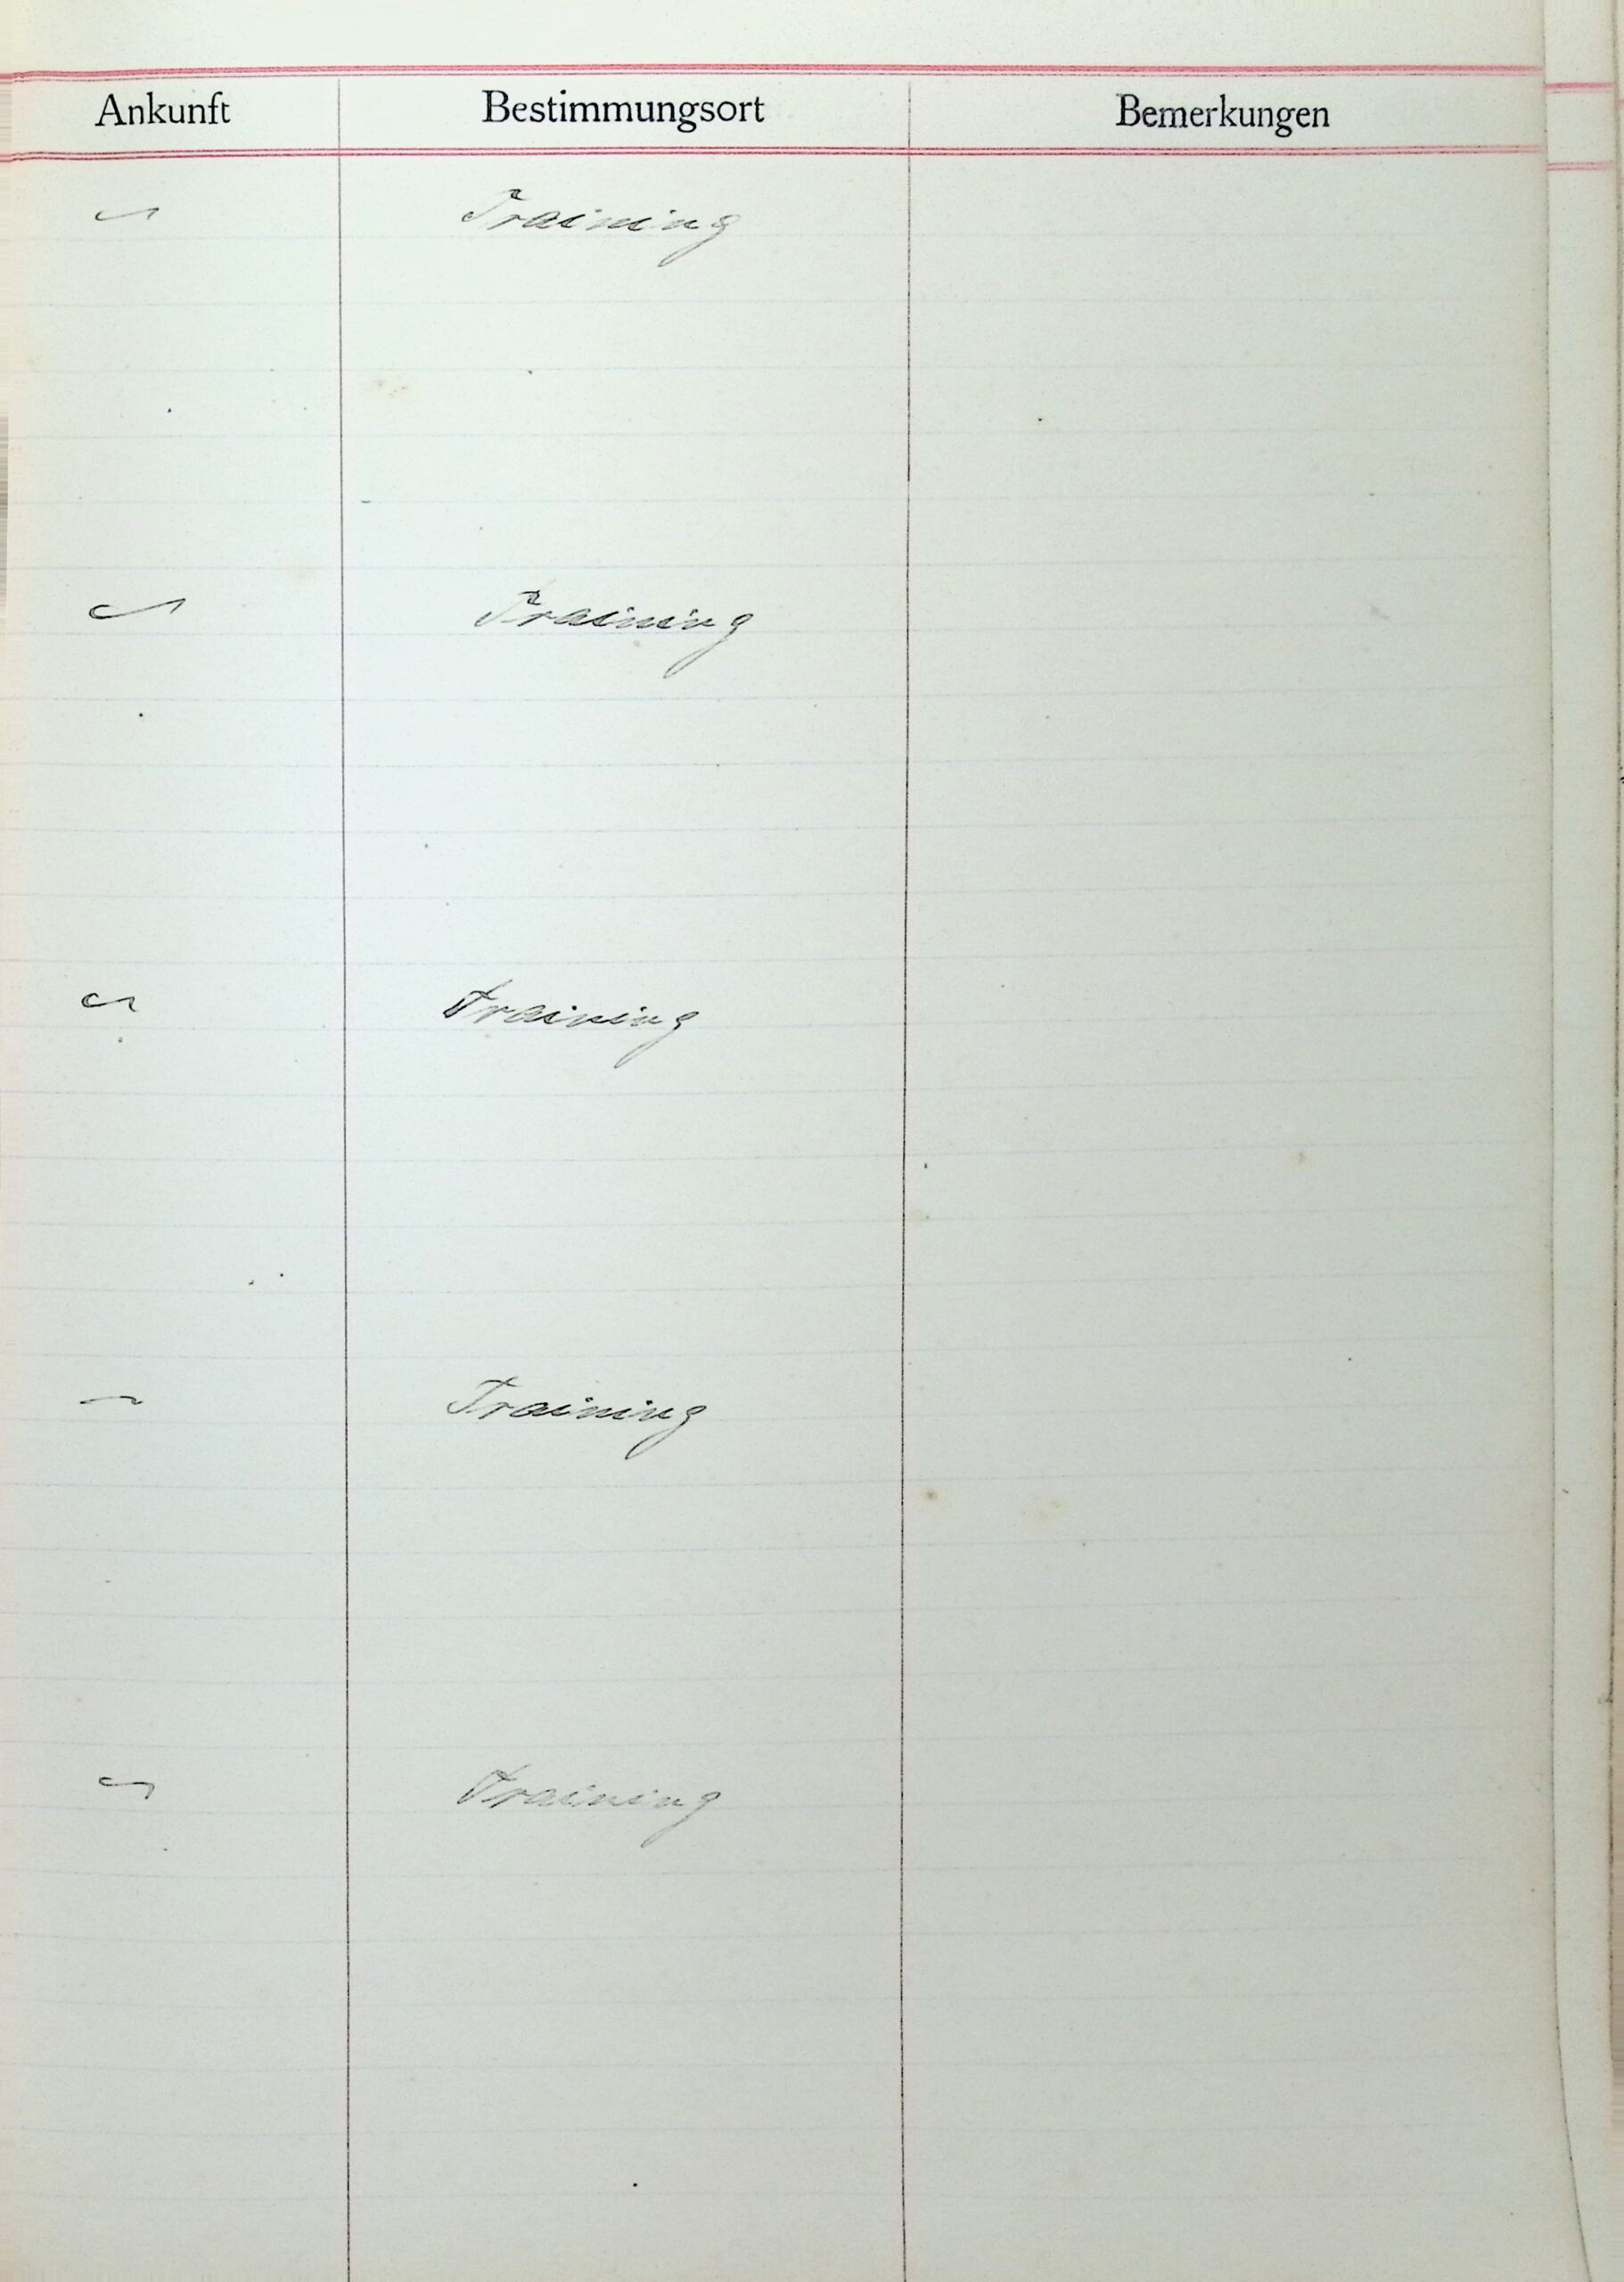 Ankunft Bestimmungsort Bemerkungen
~ Training
~ Training
~ Training
~ Training
~ Training